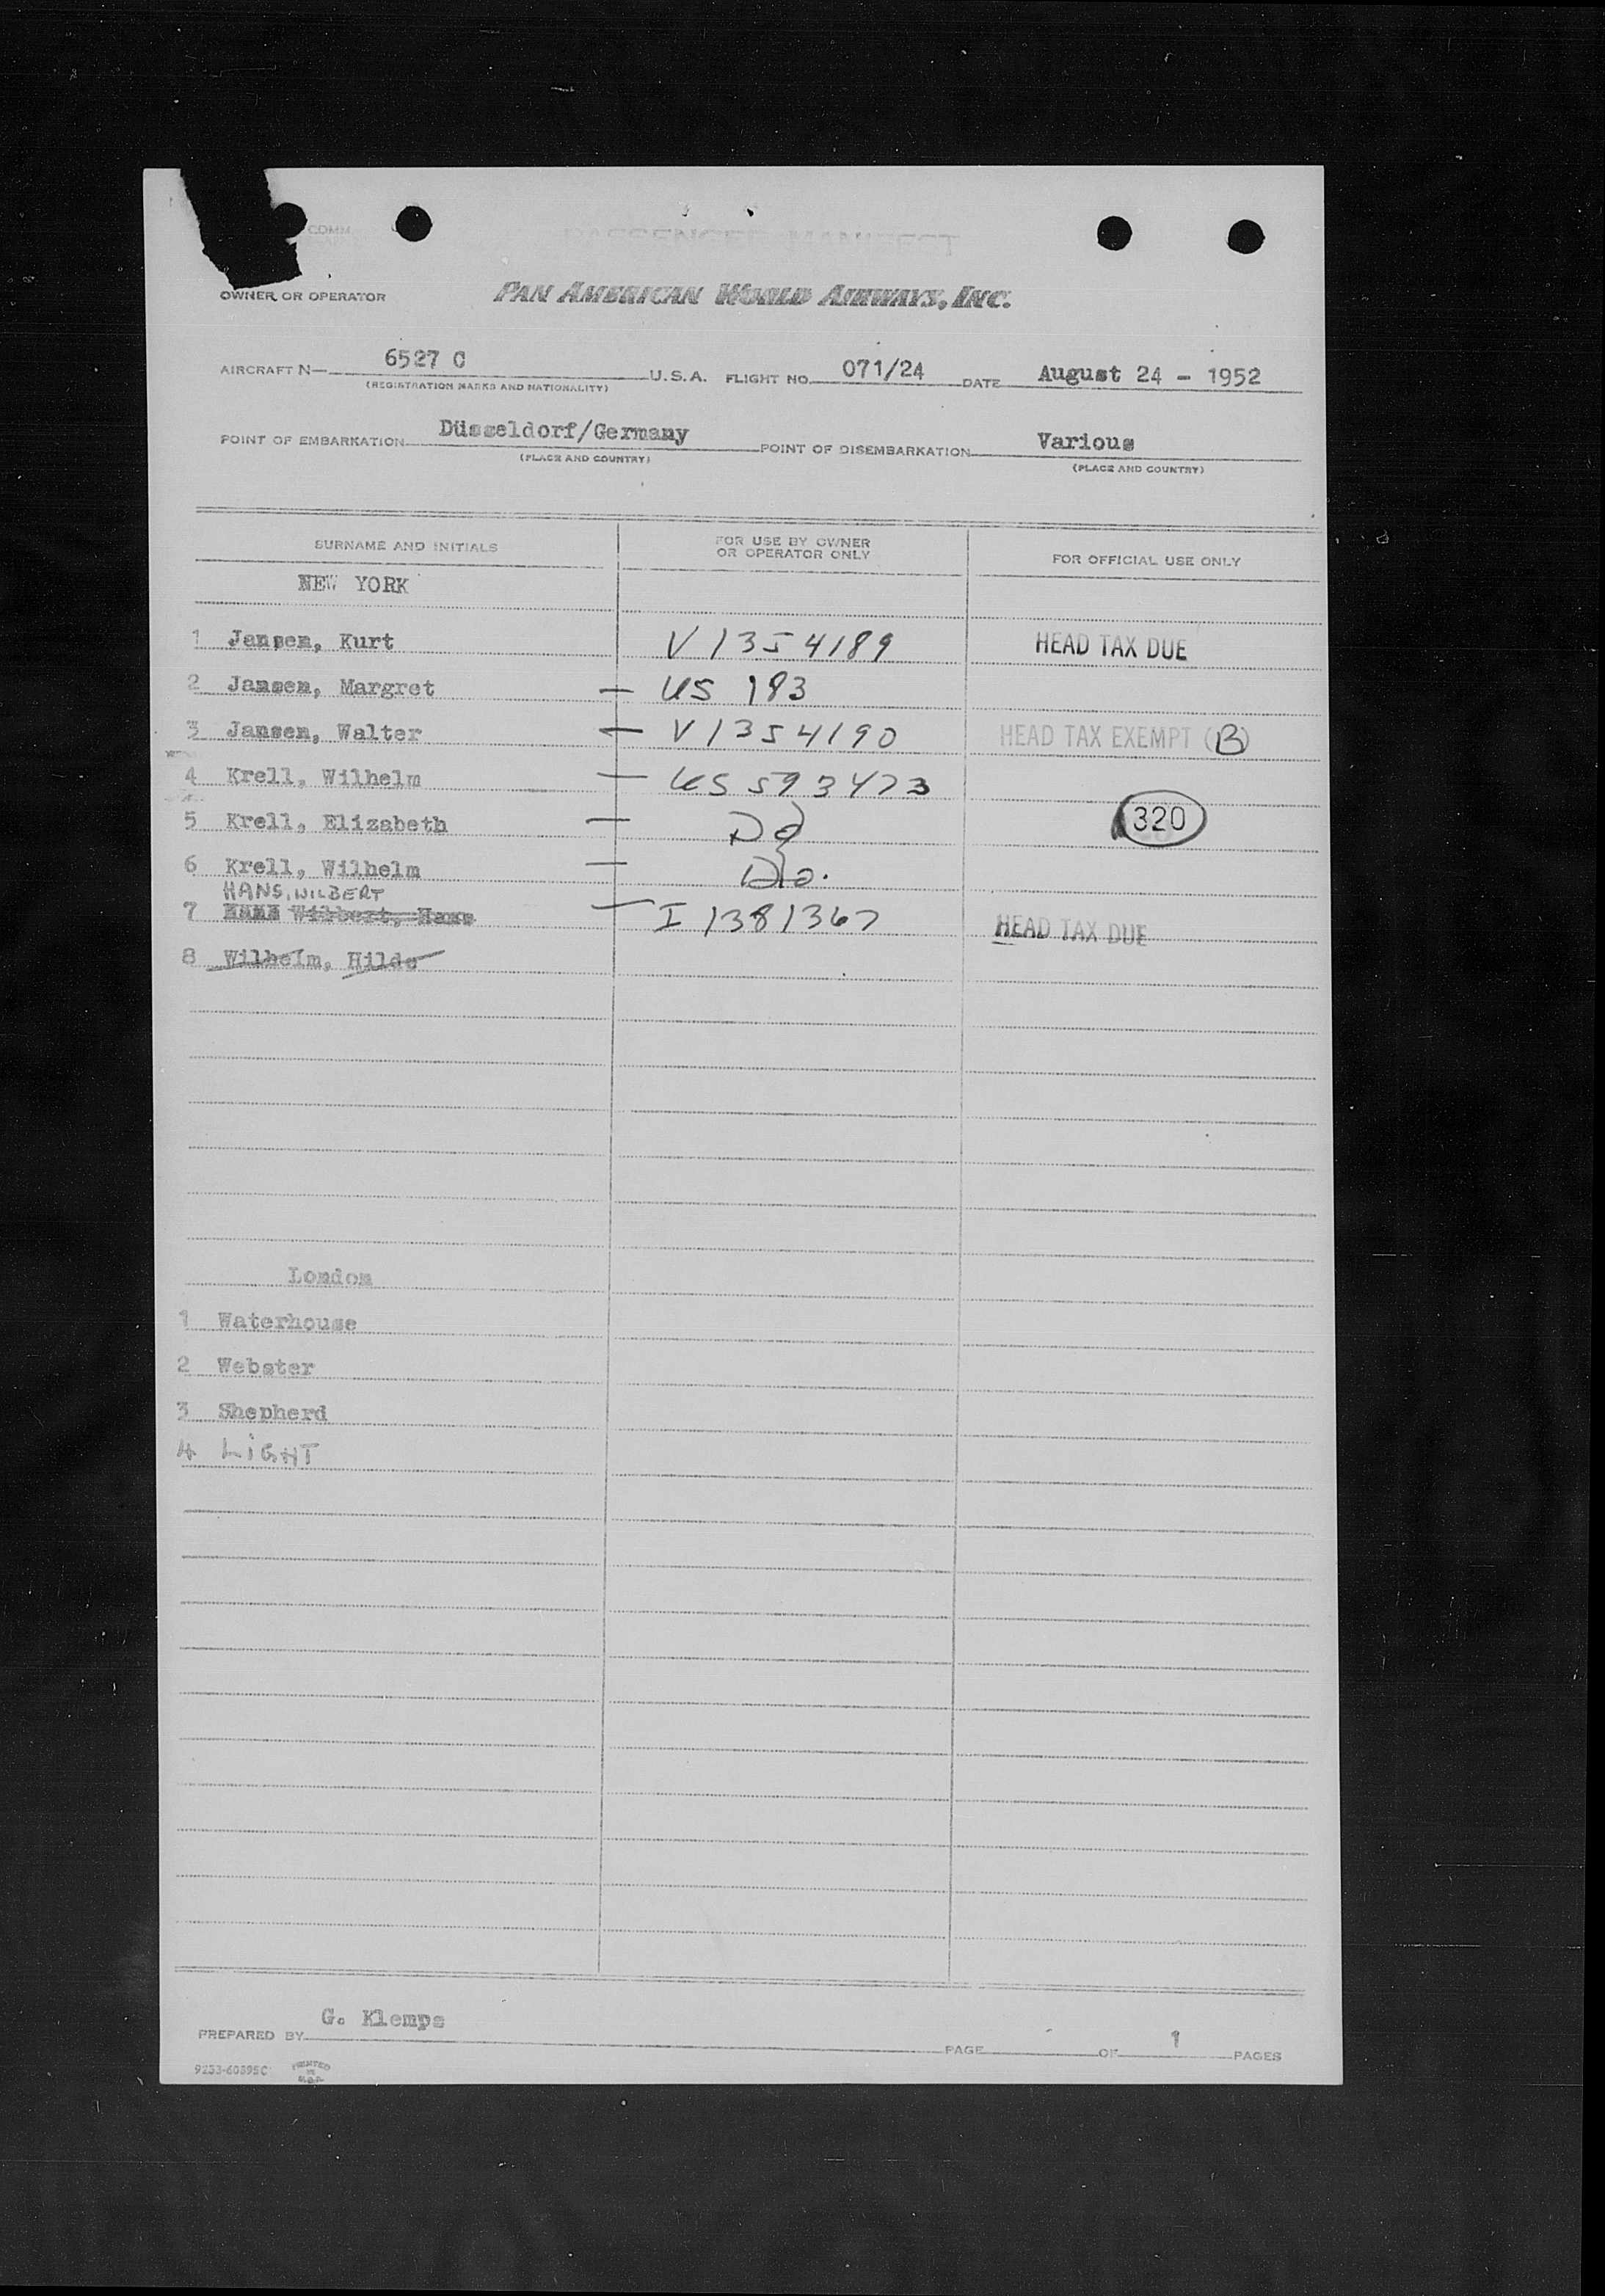 COMM
PASSENGER MANIFEST
OWNER OR OPERATOR PAN AMERICAN WORLD AIRWAYS, INC.
AIRCRAFT N— 6527 C U.S.A. FLIGHT NO. 071/24 DATE August 24 - 1952
(REGISTRATION MARKS AND NATIONALITY)
POINT OF EMBARKATION Düsseldorf/Germany POINT OF DISEMBARKATION Various
(PLACE AND COUNTRY) (PLACE AND COUNTRY)
SURNAME AND INITIALS FOR USE BY OWNER OR OPERATOR ONLY FOR OFFICIAL USE ONLY
NEW YORK
1 Jansen, Kurt V1354189 HEAD TAX DUE
2 Jansen, Margret — US 183
3 Jansen, Walter — V1354190 HEAD TAX EXEMPT (B)
4 Krell, Wilhelm — US 593473
5 Krell, Elizabeth — Do 320
6 Krell, Wilhelm — Do.
HANS, WILBERT
7 Wilbert, Hans — I 1381367 HEAD TAX DUE
8 Wilhelm, Hilde
London
1 Waterhouse
2 Webster
3 Shepherd
4 LIGHT
PREPARED BY G. Klemps PAGE OF 1 PAGES
9253-60895C PRINTED IN U.S.A.